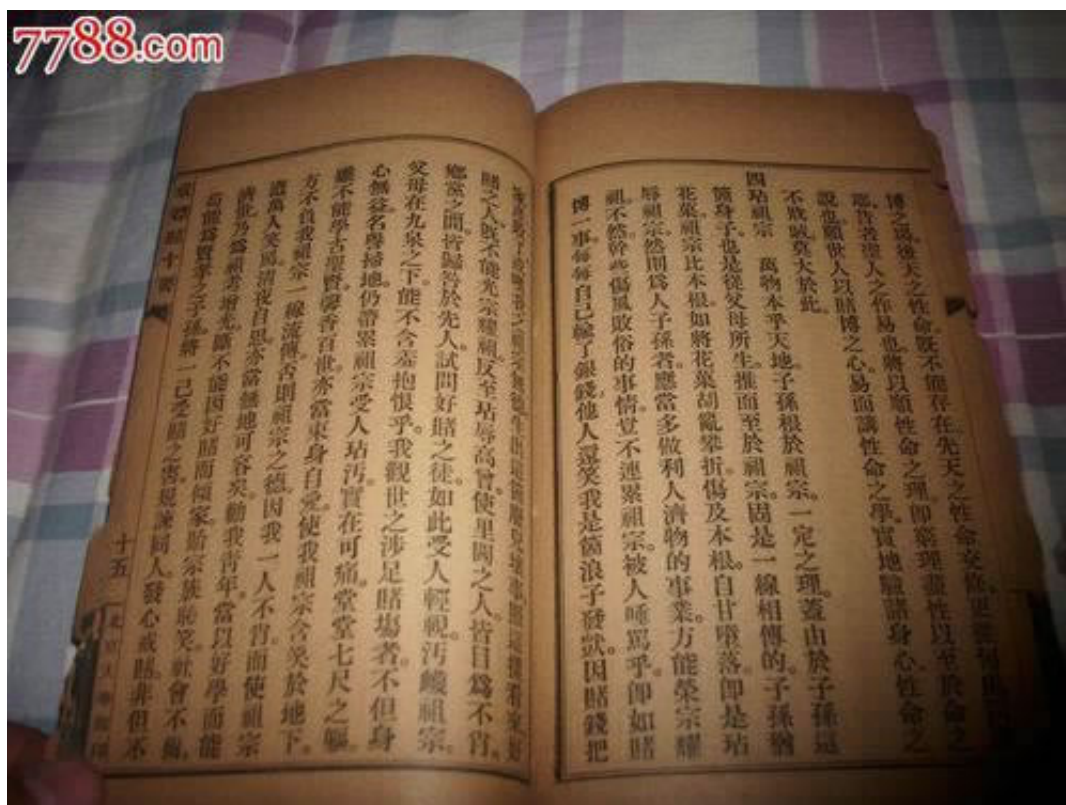 7788.com
博之場後天之性命旣不能存在先天之性命安
耶昔者聖人之作易也將以順性命之理卽窮理盡性以至於命之
說也願世人以賭博之心易而講性命之學實地驗諸身心性命之
不敗敗莫大於此
四玷祖宗 萬物本乎天地子孫根於祖宗一定之理蓋由於子孫這
箇身子也是從父母所生推而至於祖宗固是一線相傳的子孫猶
花菓祖宗比本根如將花菓胡亂攀折傷及本根自甘墮落卽是玷
辱祖宗然則爲人子孫者應當多做利人濟物的事業方能榮宗耀
祖不然幹些傷風敗俗的事情豈不連累祖宗被人唾罵乎卽如賭
博一事每每自己輸了銀錢他人還笑我是箇浪子發獃因賭錢把
賭之人旣不能光宗耀祖反至玷辱高曾使里閭之人皆目爲不肖
鄉黨之間皆歸咎於先人試問好賭之徒如此受人輕視汚衊祖宗
父母在九泉之下能不含羞抱恨乎我觀世之涉足賭場者不但身
心無益名譽掃地仍帶累祖宗受人玷汚實在可痛堂堂七尺之軀
雖不能學古聖賢馨香百世亦當束身自愛使我祖宗含笑於地下
方不負我祖宗一線流傳否則祖宗之德因我一人不肖而使祖宗
遭萬人笑罵清夜自思亦當無地可容矣勸我靑年當以好學而能
濟世乃爲祖考增光斷不能因好賭而傾家貽宗族恥笑社會不齒
若能爲賢孝之子孫將一己受賭之害現諫同人發心戒賭非但不
十五